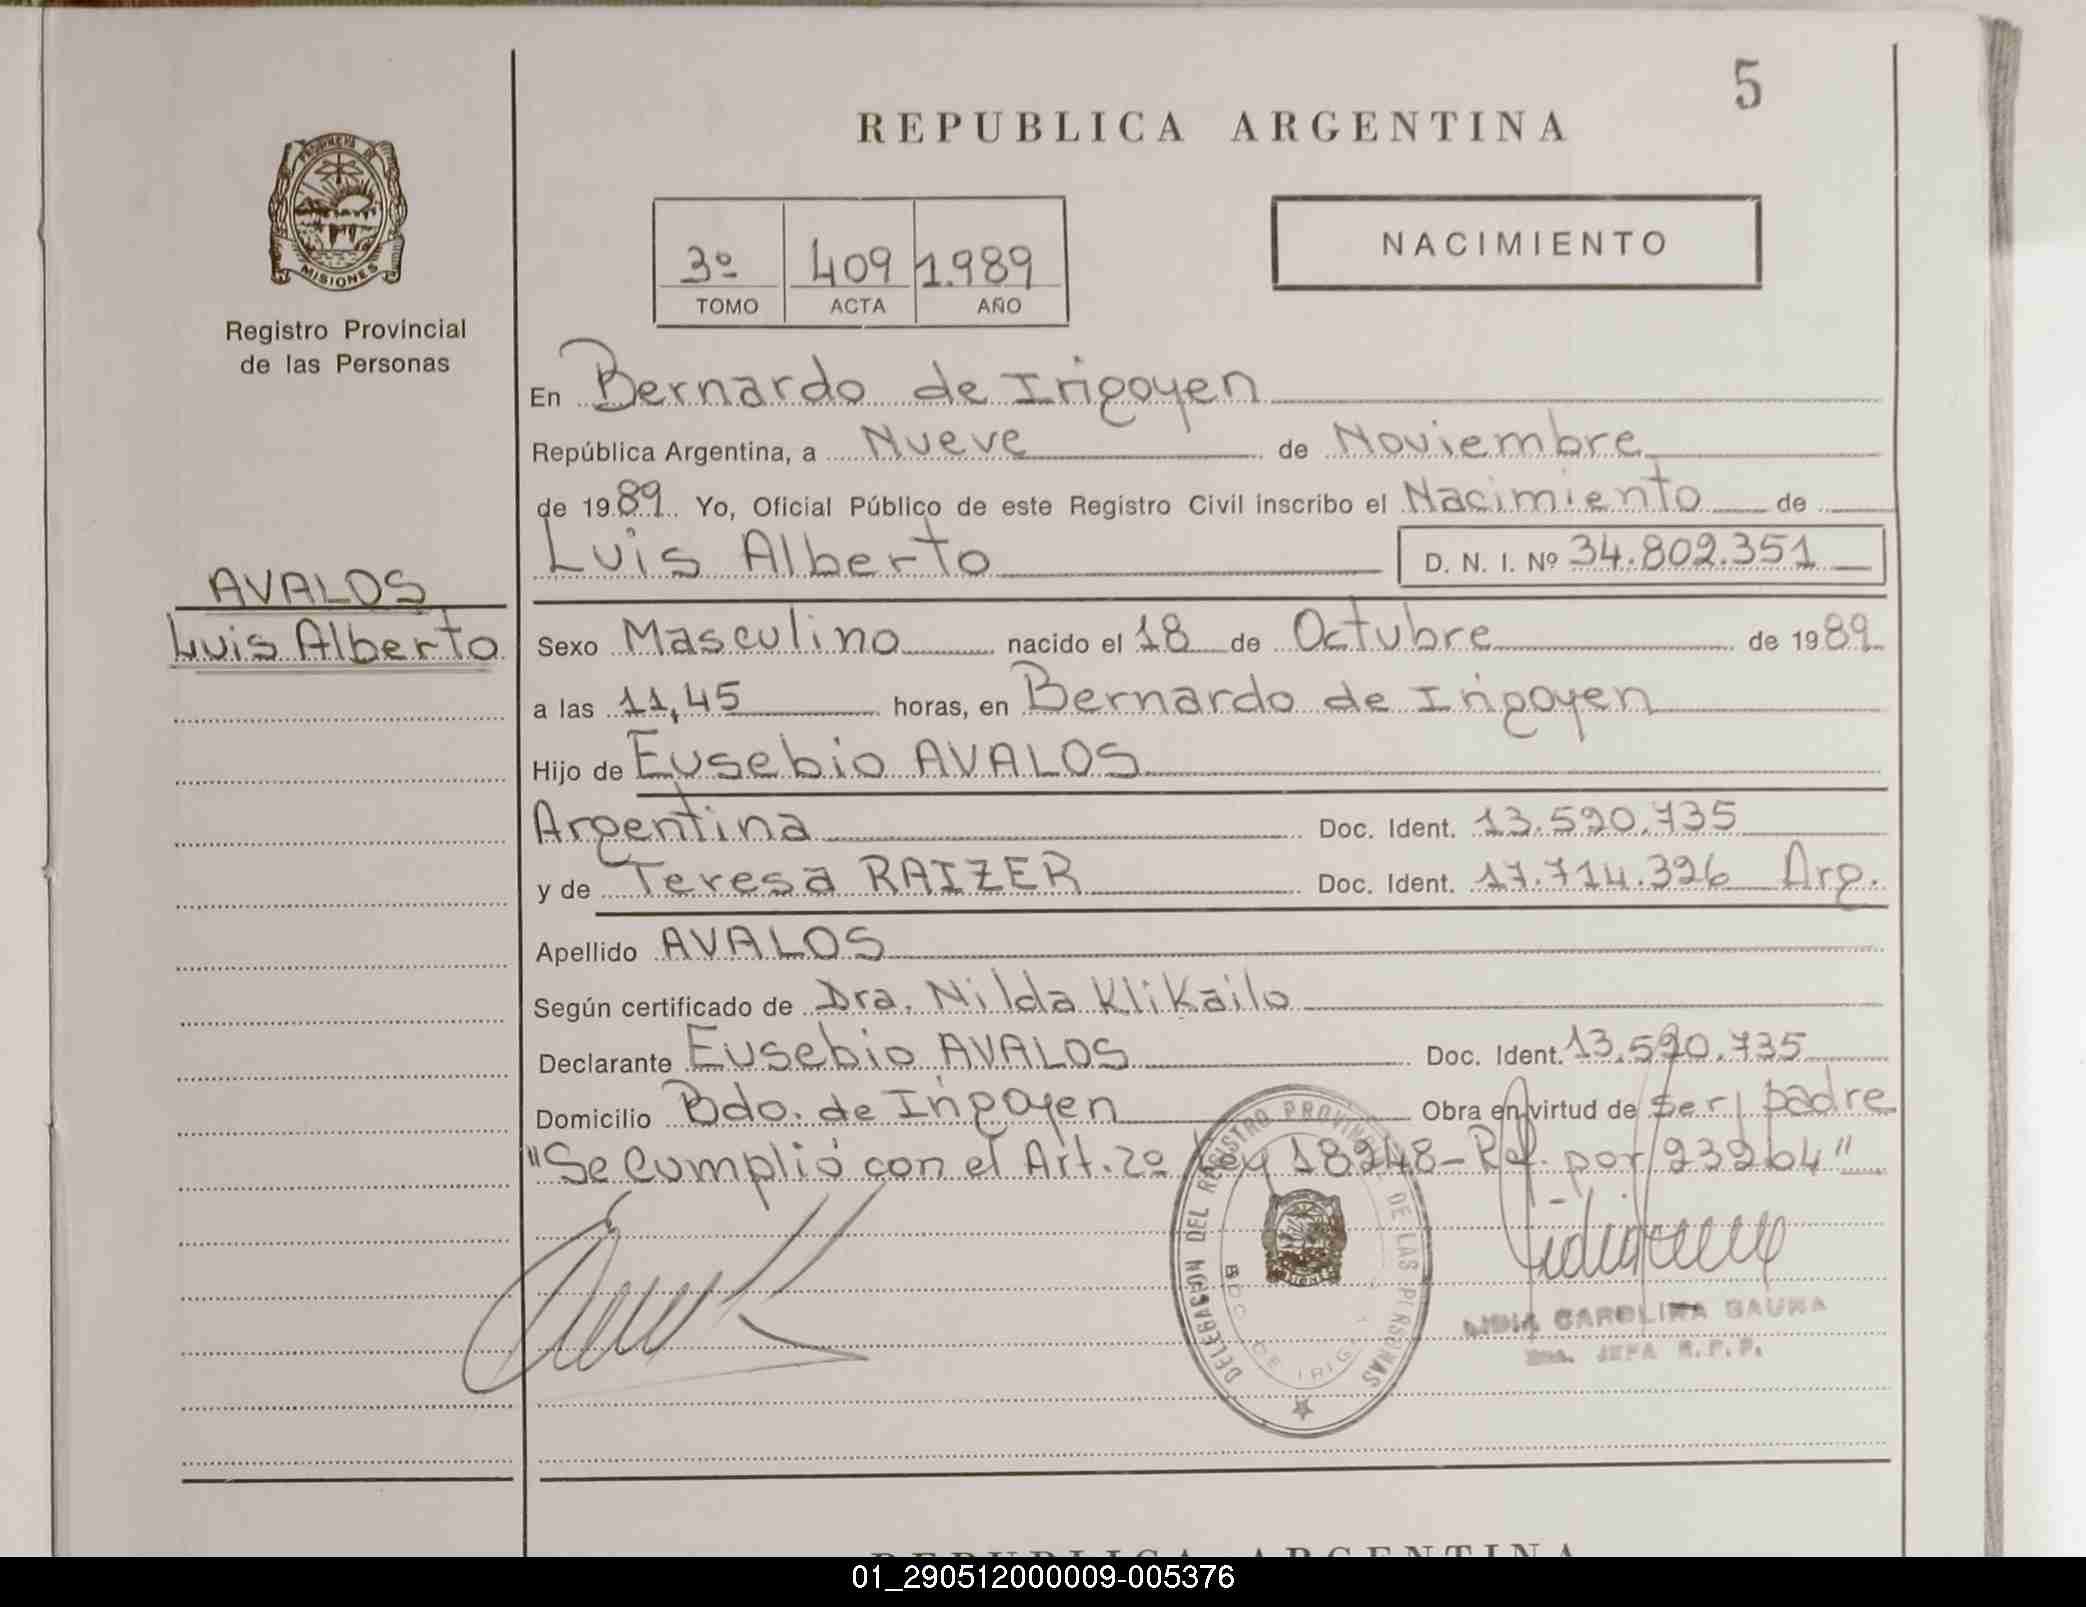 5
REPUBLICA ARGENTINA
PROVINCIA DE
MISIONES
Registro Provincial
de las Personas
3º 409 1.989
TOMO ACTA AÑO
NACIMIENTO
En Bernardo de Irigoyen
República Argentina, a Nueve de Noviembre
de 1989. Yo, Oficial Público de este Registro Civil inscribo el Nacimiento de
Luis Alberto D. N. I. Nº 34.802.351
AVALOS
Luis Alberto
Sexo Masculino nacido el 18 de Octubre de 1989
a las 11,45 horas, en Bernardo de Irigoyen
Hijo de Eusebio AVALOS
Argentina Doc. Ident. 13.590.735
y de Teresa RAIZER Doc. Ident. 17.714.326 Arg.
Apellido AVALOS
Según certificado de Dra. Nilda Klikailo
Declarante Eusebio AVALOS Doc. Ident. 13.590.735
Domicilio Bdo. de Irigoyen Obra en virtud de ser padre
"Se Cumplió con el Art. 2º Ley 18248-Ref. por 23264"
DELEGACION DEL REGISTRO PROVINCIAL DE LAS PERSONAS
BDO. DE IRIG
LIDIA CAROLINA GAUNA
JEFA R.P.P.
REPUBLICA ARGENTINA
01_290512000009-005376